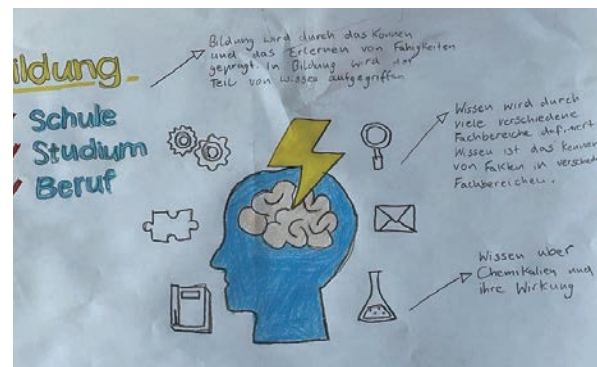 ildung
Schule
Studium
Beruf
Bildung wird durch das Können
und das Erlernen von Fähigkeiten
geprägt. In Bildung wird der
Teil von Wissen aufgegriffen
Wissen wird durch
viele verschiedene
Fachbereiche definiert
Wissen ist das kennen
von Fakten in verschied
Fachbereichen.
Wissen über
Chemikalien und
ihre Wirkung